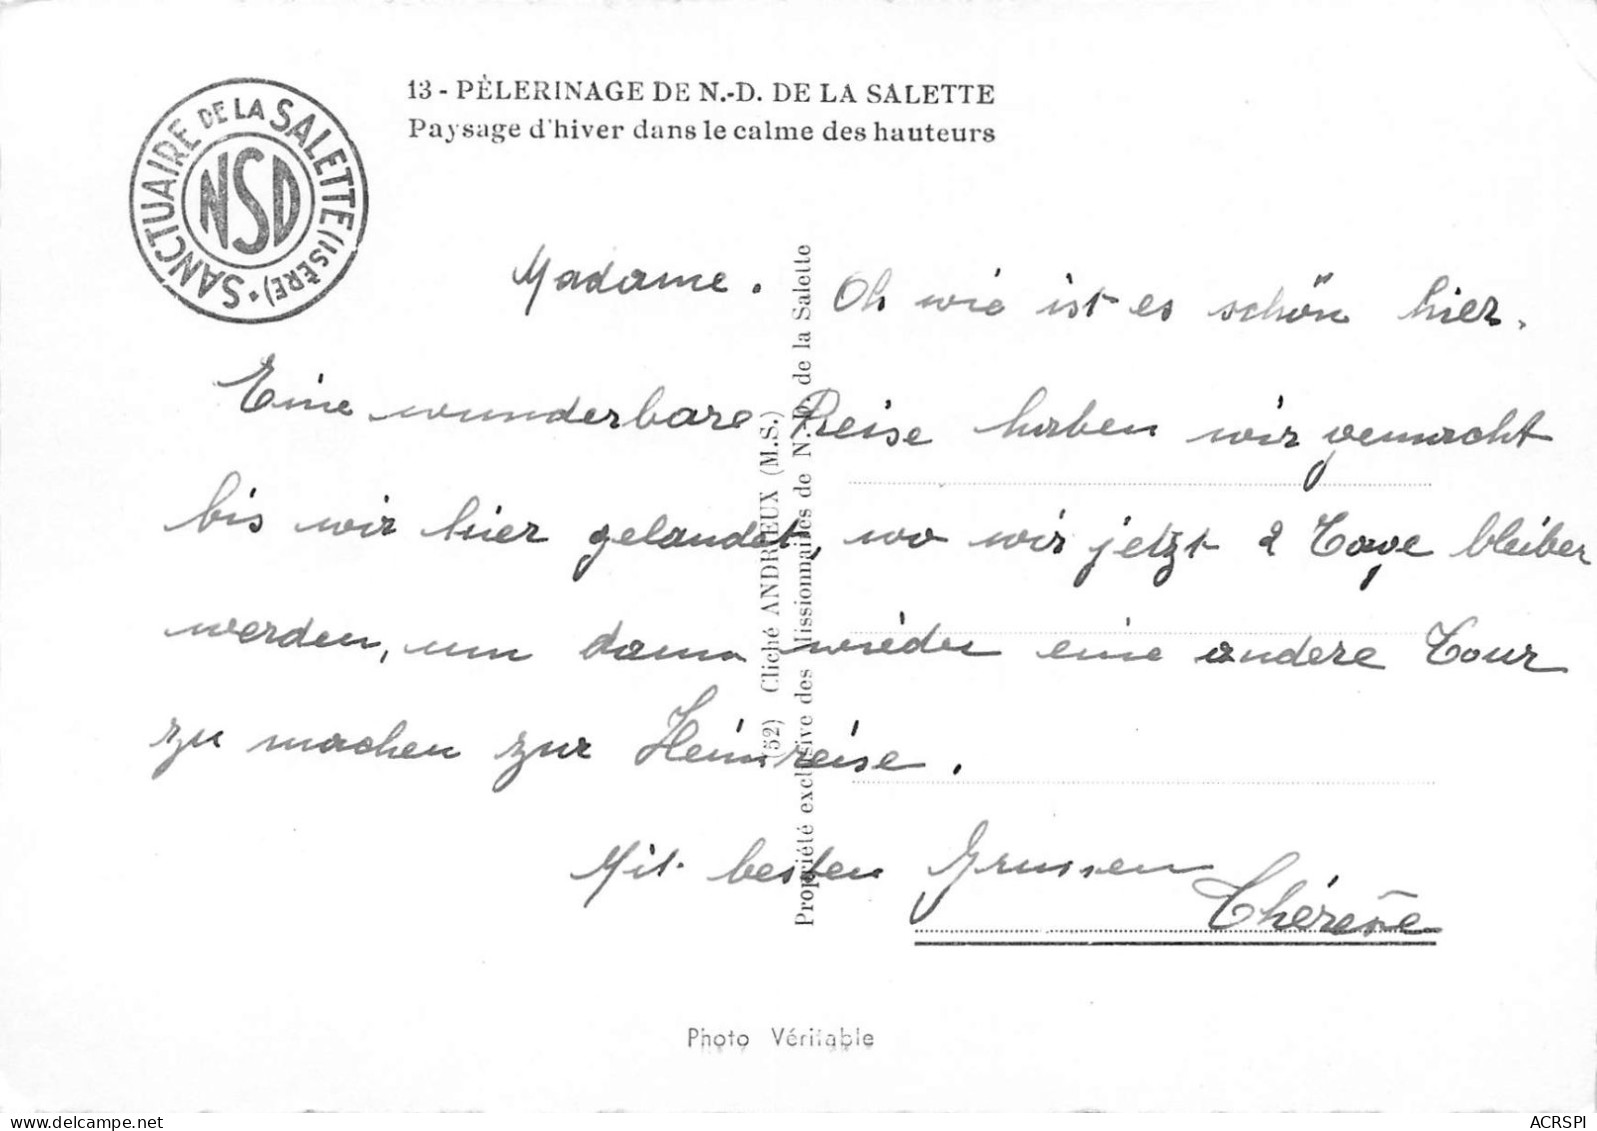 13 - PÈLERINAGE DE N.-D. DE LA SALETTE
Paysage d'hiver dans le calme des hauteurs
SANCTUAIRE DE LA SALETTE (ISÈRE) •
NSD
Madame. Oh wie ist es schön hier.
Eine wunderbare Reise haben wir gemacht
bis wir hier gelandet, wo wir jetzt 2 Tage bleiben
werden, um dann wieder eine andere Tour
zu machen zur Heimreise.
Mit besten Grussen
Thérèse
(52) Cliché ANDRIEUX (M.S.)
Propriété exclusive des Missionnaires de N.-D. de la Salette
Photo Véritable
ACRSPI